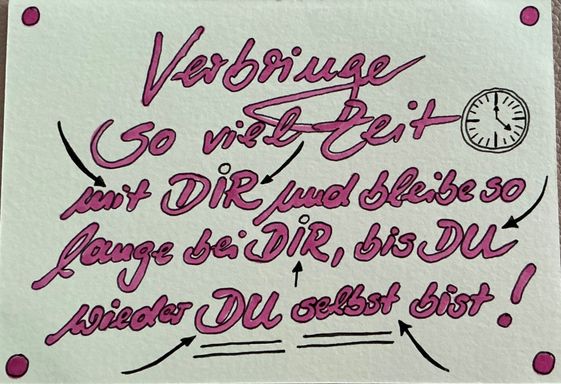 Verbringe
so viel Zeit
mit DiR und bleibe so
lange bei DiR, bis DU
wieder DU selbst bist!